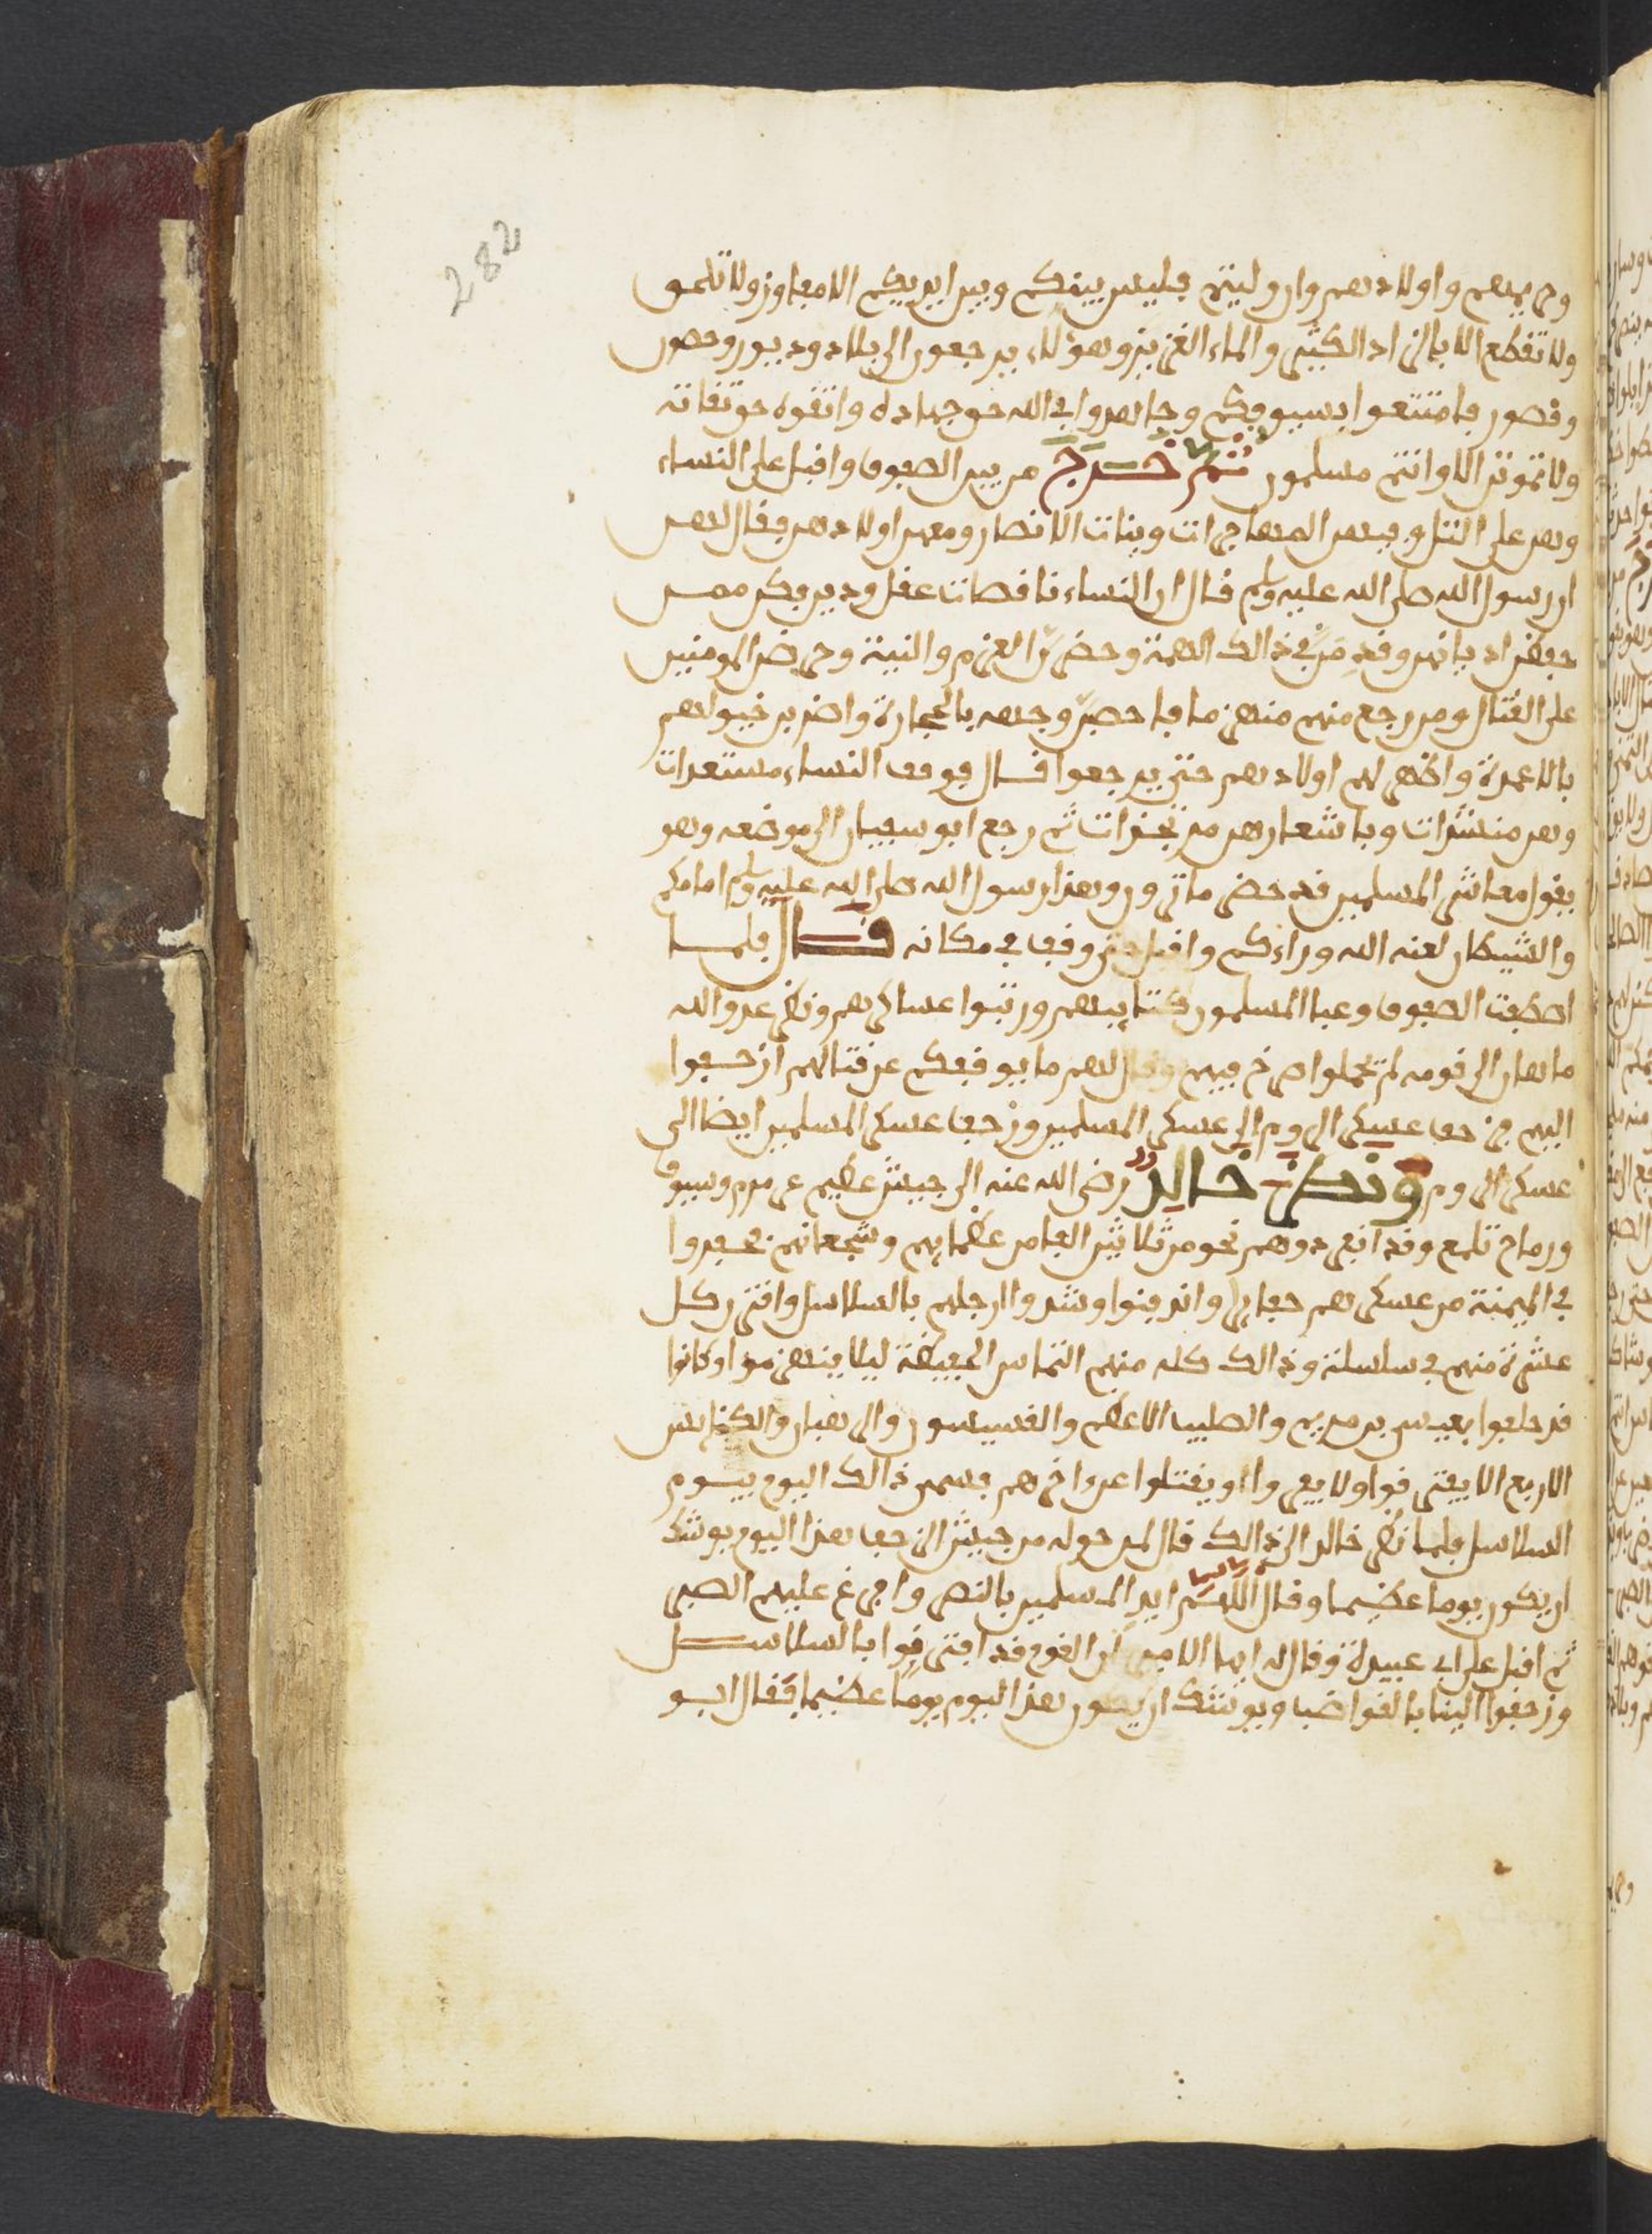 282
وحريمهم واولادهم وان وليتم فليس بينكم وبين ايديكم الا مفاوز ولا تلحو
ولا تقطع الا بالزاد الكثير والماء الغزير وهؤلاء يرجعون الى بلاد ودور وحصون
وقصور فامتنعوا بسيوفكم وجاهدوا في الله حق جهاده واتقوه حق تقاته
ولا تموتن الا وانتم مسلمون ثم خرج من بين الصفوف واقبل على النساء
وهن على التل وفيهن المهاجرات وبنات الانصار ومعهن اولادهن فقال لهن
ان رسول الله صلى الله عليه وسلم قال ان النساء ناقصات عقل ودين فكن ممن
حفظن اديانهن وقدمن في ذالك الهمة وحضرن العزم والنية وحرضن المومنين
على القتال ومن رجع منهم منهزما فاحصبن وجهه بالحجارة واضربن خيولهم
بالاعمدة واظهرن لهم اولادهم حتى يرجعوا قال فوقف النساء مستعدات
وهن منشرات وباشعارهن مرتجزات ثم رجع ابو سفيان الى موضعه وهو
يقول معاشر المسلمين قد حضر ما ترون وهذا رسول الله صلى الله عليه وسلم امامكم
والشيطان لعنه الله وراءكم واقبل حتى وقف في مكانه قال فلما
اصطفت الصفوف وعبا المسلمون كتايبهم ورتبوا عساكرهم ونظر عدو الله
ماهان الى قومه لم يحملوا صرخ فيهم وقال لهم ما يوقفكم عن قتالهم ازحفوا
اليهم فزحف عسكر الروم الى عسكر المسلمين وزحف عسكر المسلمين ايضا الى
عسكر الروم ونظر خالد رضي الله عنه الى جيش عظيم عرمرم وسيوف
ورماح تلمع وقد انفردوهم نحو من ثلاثين الفا من عظمايهم وشجعانهم فحفروا
في الميمنة من عسكرهم حفاير واندفنوا وشدوا ارجلهم بالسلاسل واقترن كل
عشرة منهم في سلسلة وذالك كله منهم التماس الحفيظة ليلا ينهزموا وكانوا
قد حلفوا بعيسى بن مريم والصليب الاعظم والقسيسون والرهبان والكنايس
الاربع الا يفترقوا ولا يفروا او يقتلوا عن اخرهم فسمي ذالك اليوم بيوم
السلاسل فلما نظر خالد الى ذالك قال لمن حوله من جيش الزحف هذا اليوم يوشك
ان يكون يوما عظيما وقال اللهم ايد المسلمين بالنصر وافرغ عليهم الصبر
ثم اقبل على ابي عبيدة وقال له ايها الامير ان القوم قد اقترنوا بالسلاسل
وزحفوا الينا بالقواضب ويوشك ان يكون هذا اليوم يوما عظيما فقال ابو